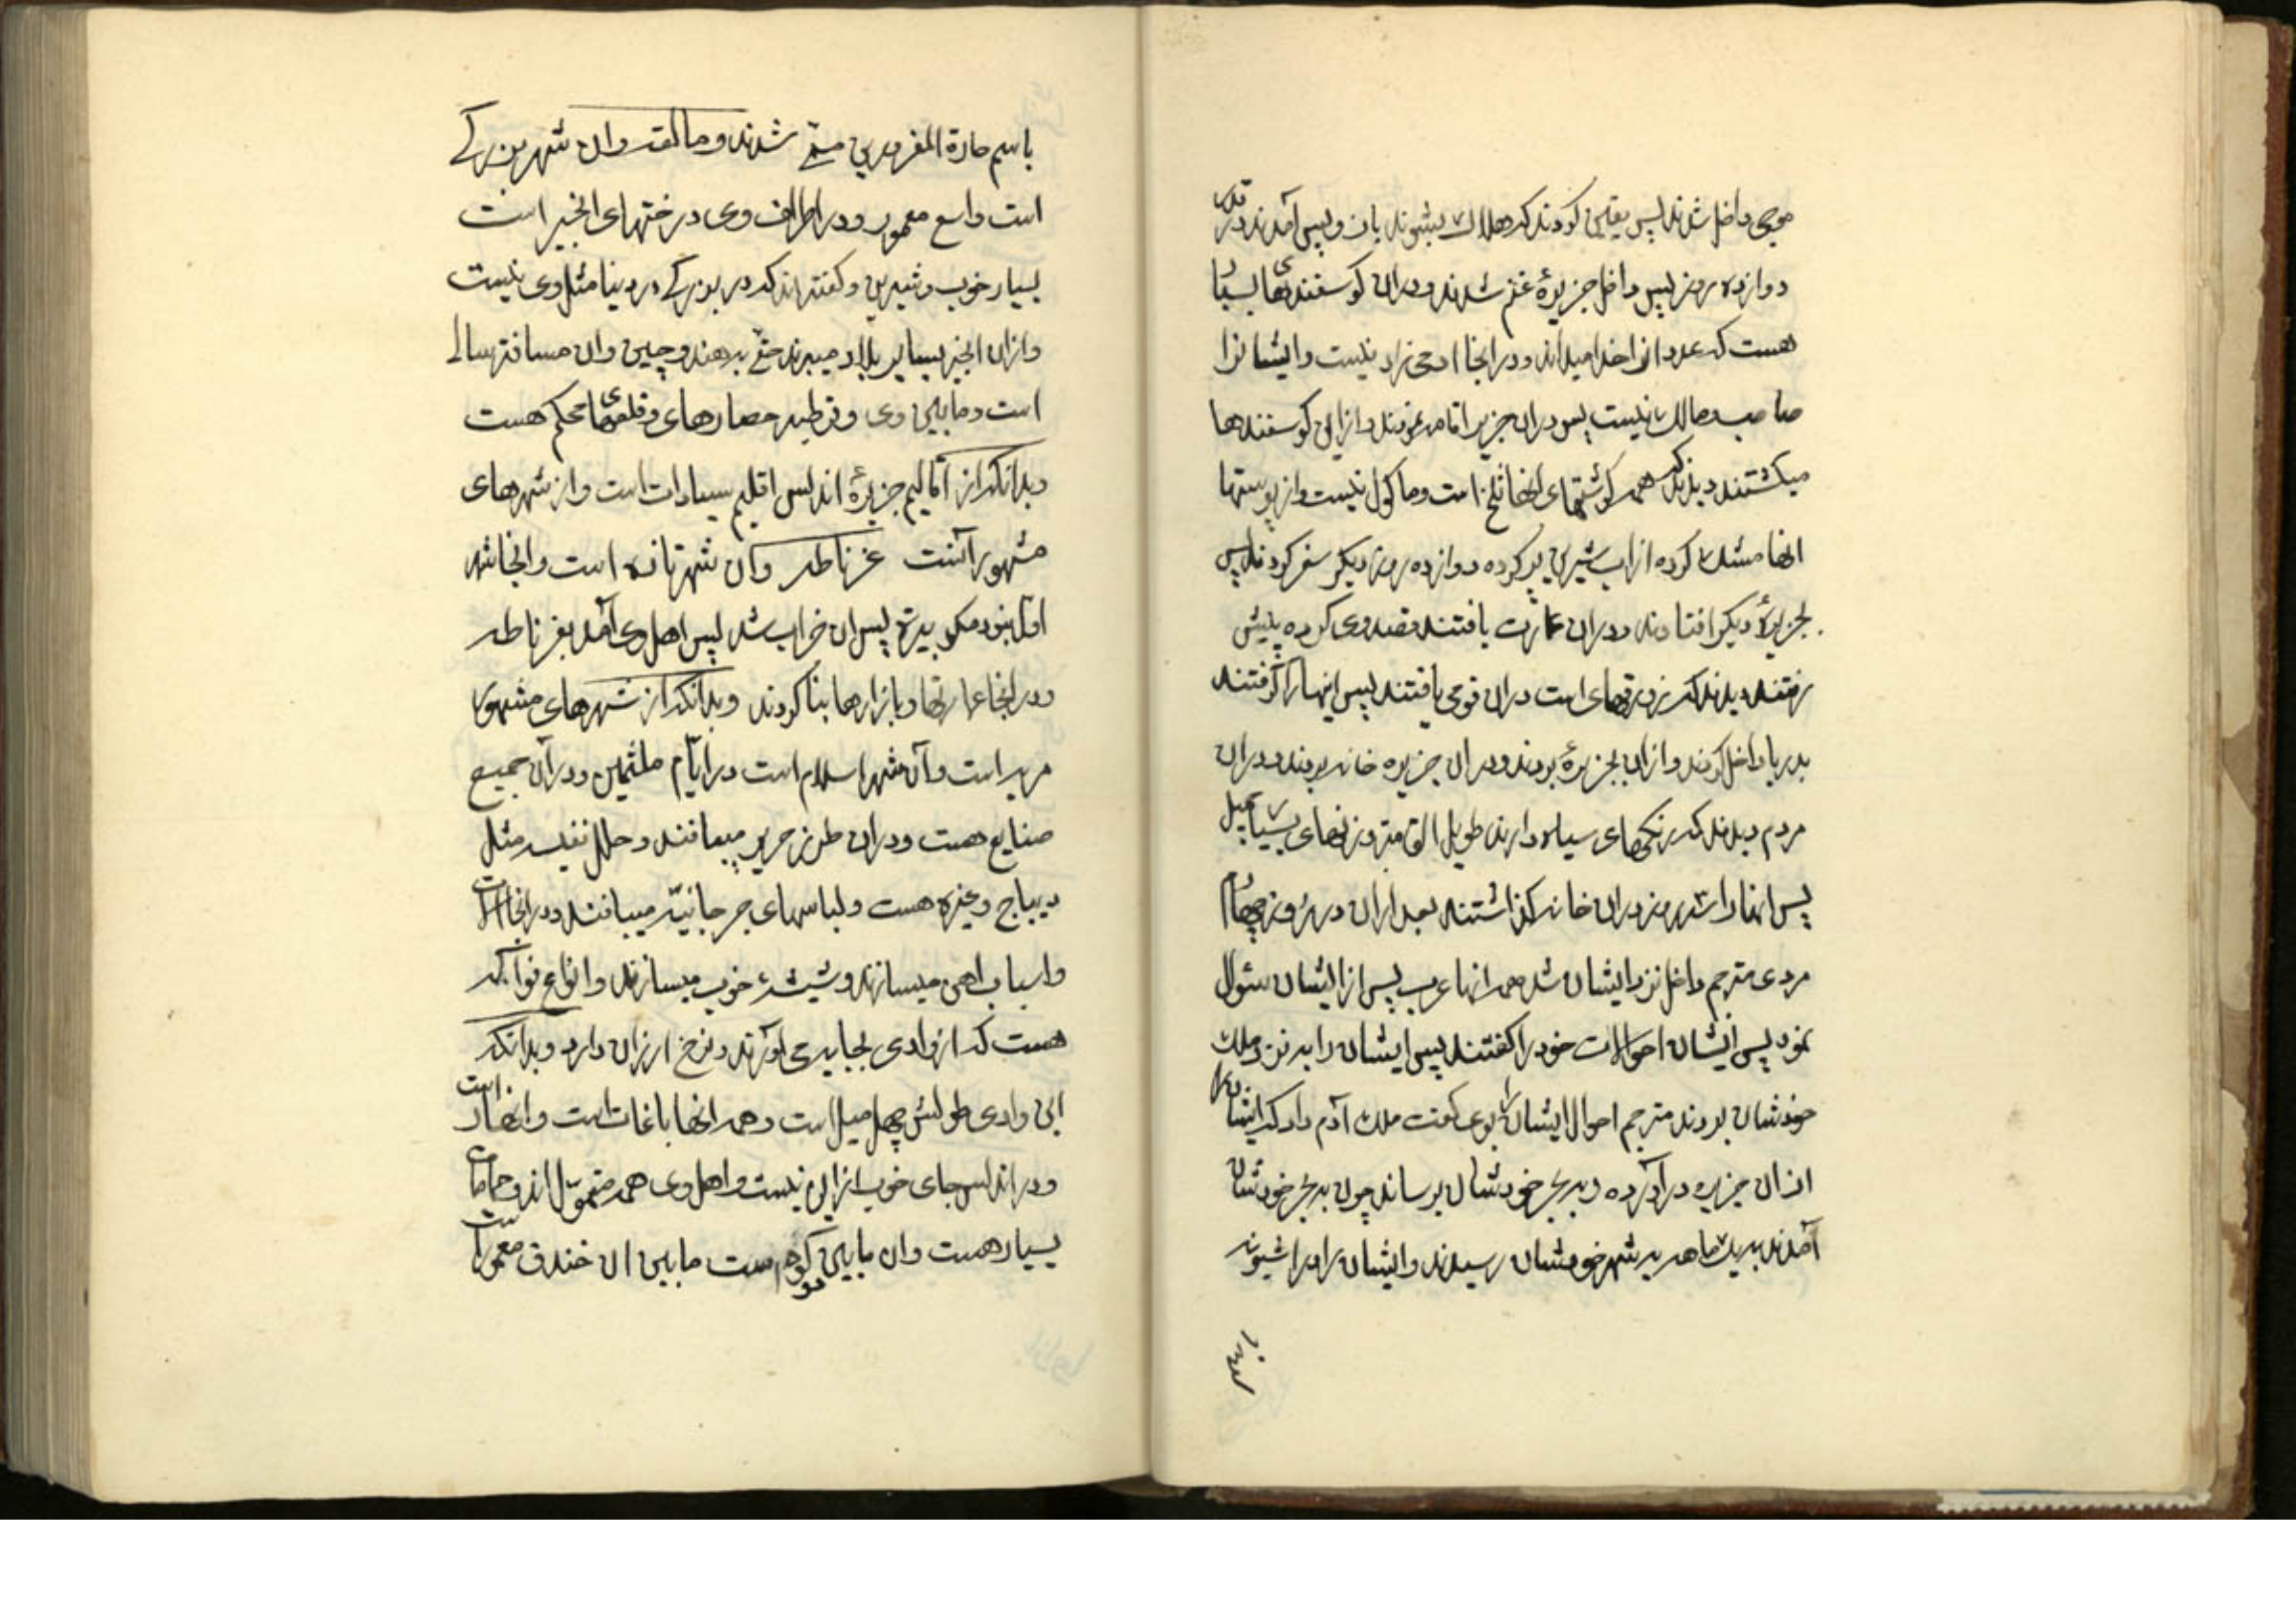 موجی داخل شدند پس یقین کردند که هلاک بشوند بان و پس آمدند در قدر
دوازده روز پس داخل جزیرهٔ غنم شدند و دران کوسفندیها بسیار
هست که عدد انرا خدا میداند و در انجا ادمی زاد نیست و ایشانرا
صاحب و مالک نیست پس دران جزیره اقامه نمودند و از این کوسفندها
میکشتند دیدند که همه کوشتهای انها تلخ است و ماکول نیست و از پوستها
انها مشک کرده از اب شیرین پر کرده دوازده روز دیکر سفر کردند پس
بجزیرهٔ دیکر افتادند و دران عمارت یافتند و قصد وی کرده پیش
رفتند دیدند که زورقهای است دران قومی یافتند پس اینها را کرفتند
بدریا داخل کردند و ازان بجزیرهٔ بردند و دران جزیره خانه بردند و دران
مردم دیدند که رنکهای سیاه دارند طویل القامة و زنهای بسیار جمیل
پس انها را سه روز دران خانه کذاشتند بعد ازان در روز چهارم
مردی مترجم داخل نزد ایشان شد همراه انها عرب پس از ایشان سئوال
نمود پس ایشان احوالات خود را کفتند پس ایشان را به نزد ملک
خودشان بردند مترجم احوال ایشان را بوی کفت ملک آدم داد که ایشان را
ازان جزیره در آورده و به بحر خودشان برساند چون به بحر خودشان
آمدند به یک ماهه به شهر خودشان رسیدند و ایشان را در اشبونه
باسم حارة المغرورین مسمّی شدند و مالقه وان شهر بزرکی
است واسع معمور و در اطراف وی درختهای انجیر است
بسیار خوب و شیرین و کفته اند که در بزرکی در دنیا مثل وی نیست
وازان انجیر بسایر بلاد میبرند حتّی به هند و چین وان مسافة سالی
است و مابین وی و قرطبه حصارهای و قلعهای محکم هست
وبدانکه از اقالیم جزیرهٔ اندلس اقلیم سیادات است و از شهرهای
مشهور آنست غرناطه وان شهر تازه است و انجا شهر
اول نبود مکر بیرة پس ان خراب شد پس اهل وی آمد بغرناطه
و در انجا عمارتها و بازارها بنا کردند وبدانکه از شهرهای مشهور
مریه است وآن شهر اسلام است در ایّام ملثمین و در آن جمیع
صنایع هست و دران طرز حریر میبافند و حلل نفیسه مثل
دیباج و غیره هست و لباسهای جرجانیّه میبافند و در انجا الات
و اسباب اهن میسازند و شیشهٔ خوب میسازند و انواع فواکه
هست که از وادی بجایه می اورند و نرخ ارزان دارد و بدانکه
این وادی طولش چهل میل است و همه انها باغات است و انهار است
و در اندلس جای خوب از این نیست و اهل وی همه متموّل اند و حمامات
بسیار هست وان مابین دو کوه هست مابین ان خندق معمور است